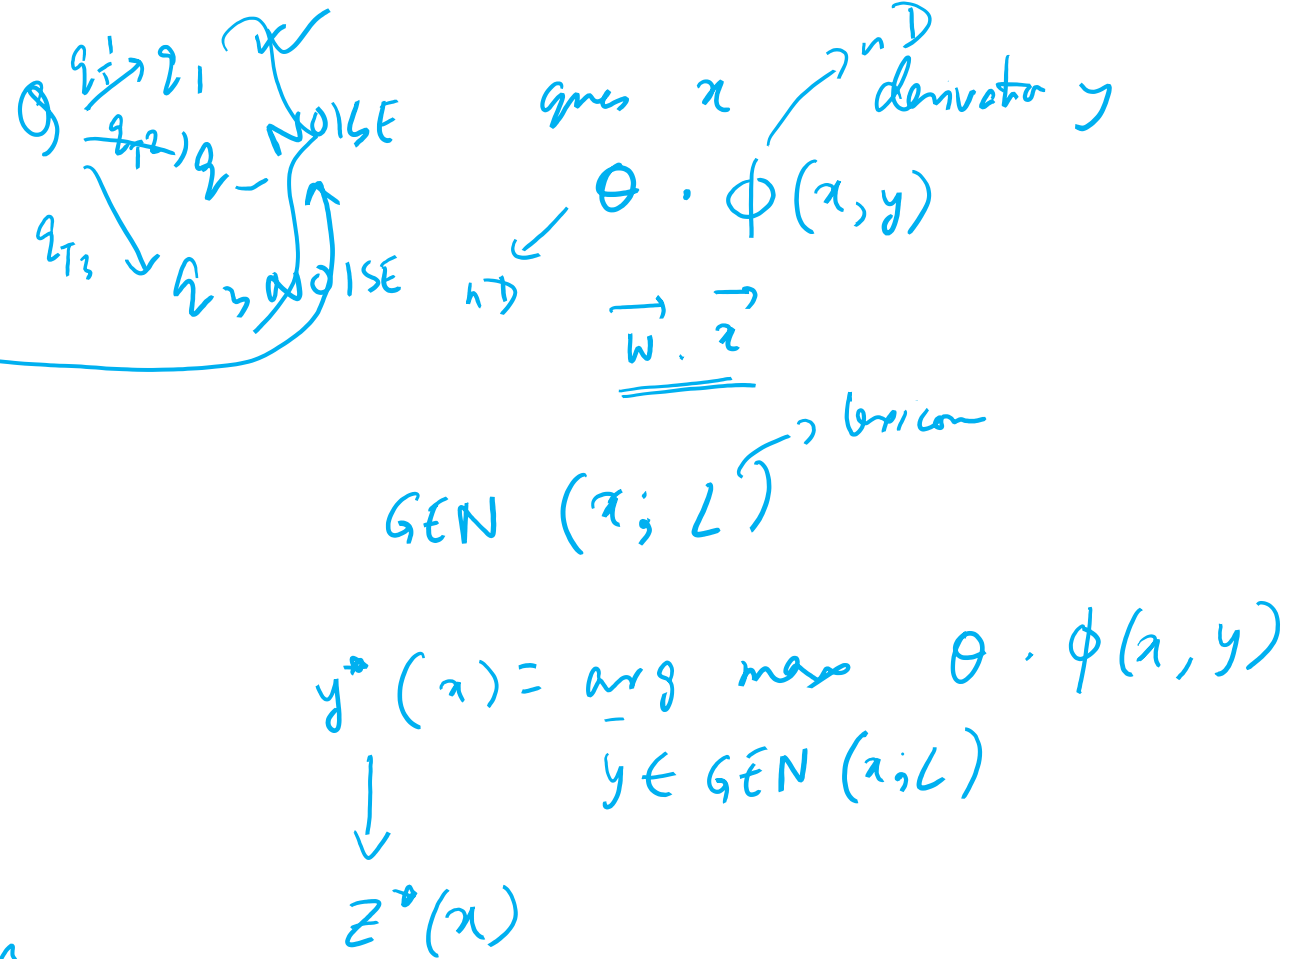 Q q_T1 → q_1
q_T2 → q_ NOISE
q_T3 q_3 NOISE
ques x derivation y
nD
θ · ϕ(x, y)
nD
w⃗ . x⃗
lexicon
GEN (x; L)
y*(x) = arg max θ · ϕ(x, y)
y ∈ GEN (x; L)
z*(x)